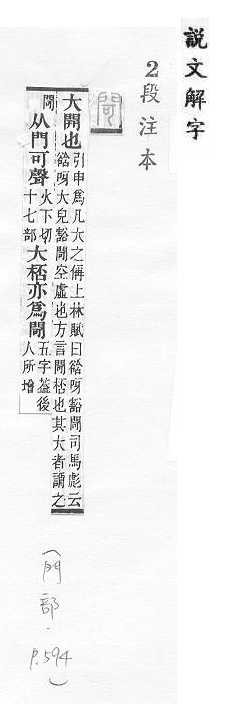 說文解字
2段注本
閜
大開也引申爲凡大之偁上林賦曰谽呀豁閜司馬彪云谽呀大皃豁閜空虛也方言閜桮也其大者謂之
閜从門可聲火下切十七部大桮亦爲閜五字葢後人所增
(門部.P.594)